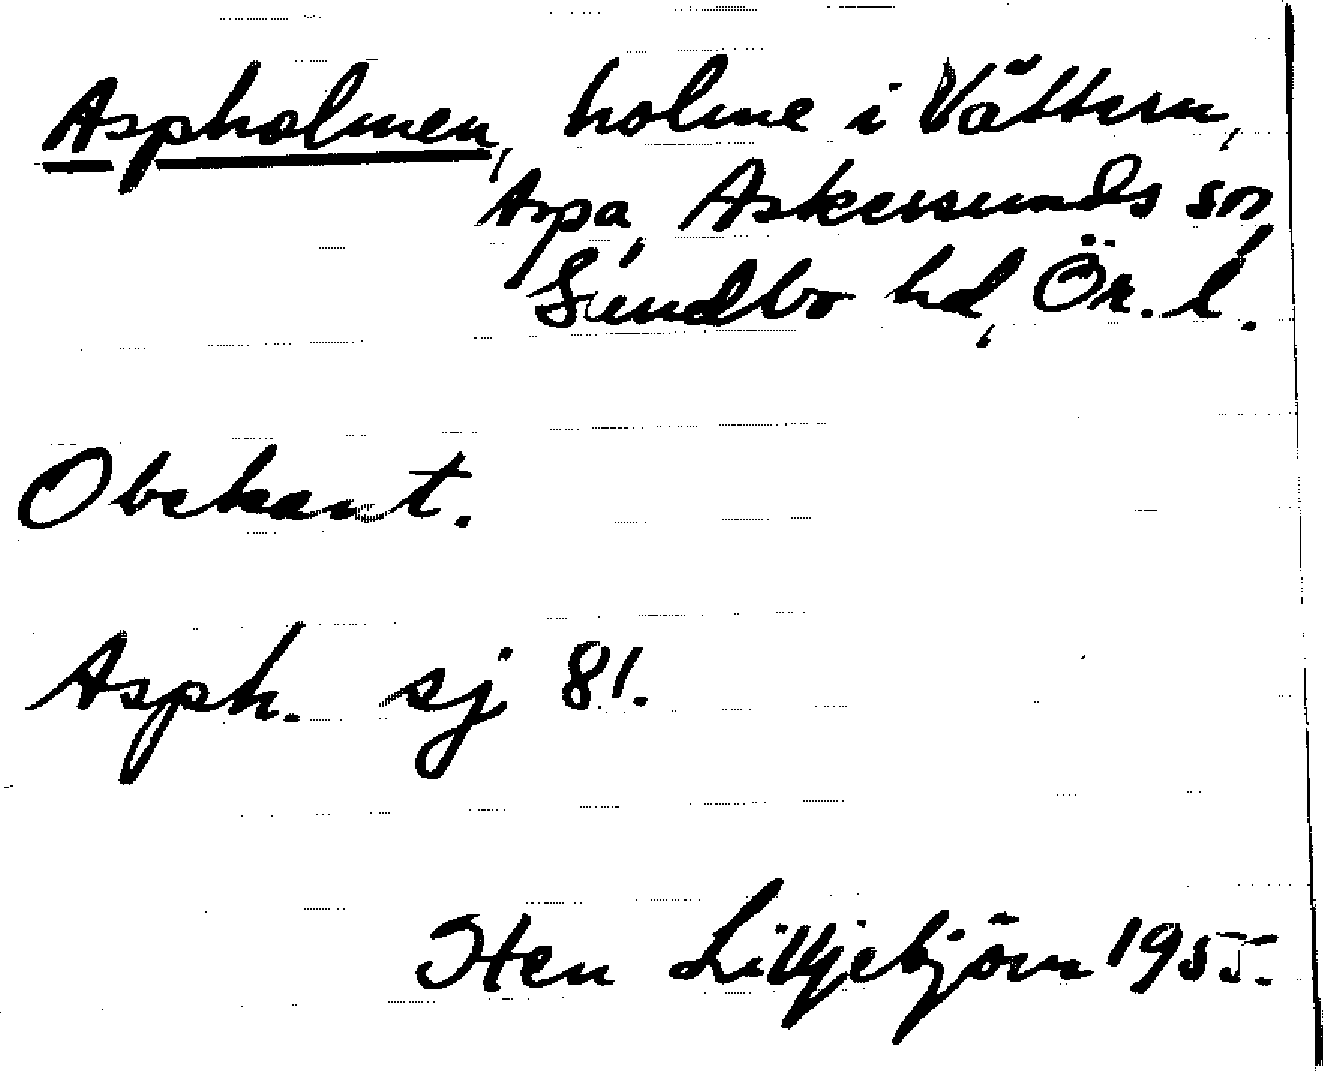 Aspholmen, holme i Vättern,
Aspa, Askersunds sn
Sundbo hd, Ör. l.
Obekant.
Asph. sj 81.
Sten Lilljebjörn 1955.